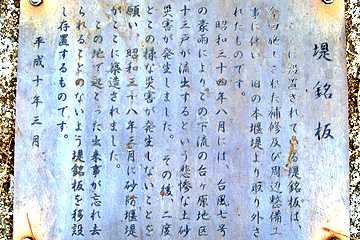 堤銘板
ここに設置されている堤銘板は、
今回施工された補修及び周辺整備工
事に伴い、旧の本堰堤より取り外さ
れたものです。
昭和三十四年八月には、台風七号
の豪雨により、この下流の台ヶ原地区
十三戸が流出するという悲惨な土砂
災害が発生しました。その後、二度
とこの様な災害が発生しないことを
願い、昭和三十八年 月に砂防堰堤
がここに築造されました。
この地で起こった出来事が忘れ去
られることのないよう堤銘板を移設
し存置するものです。
平成十年三月